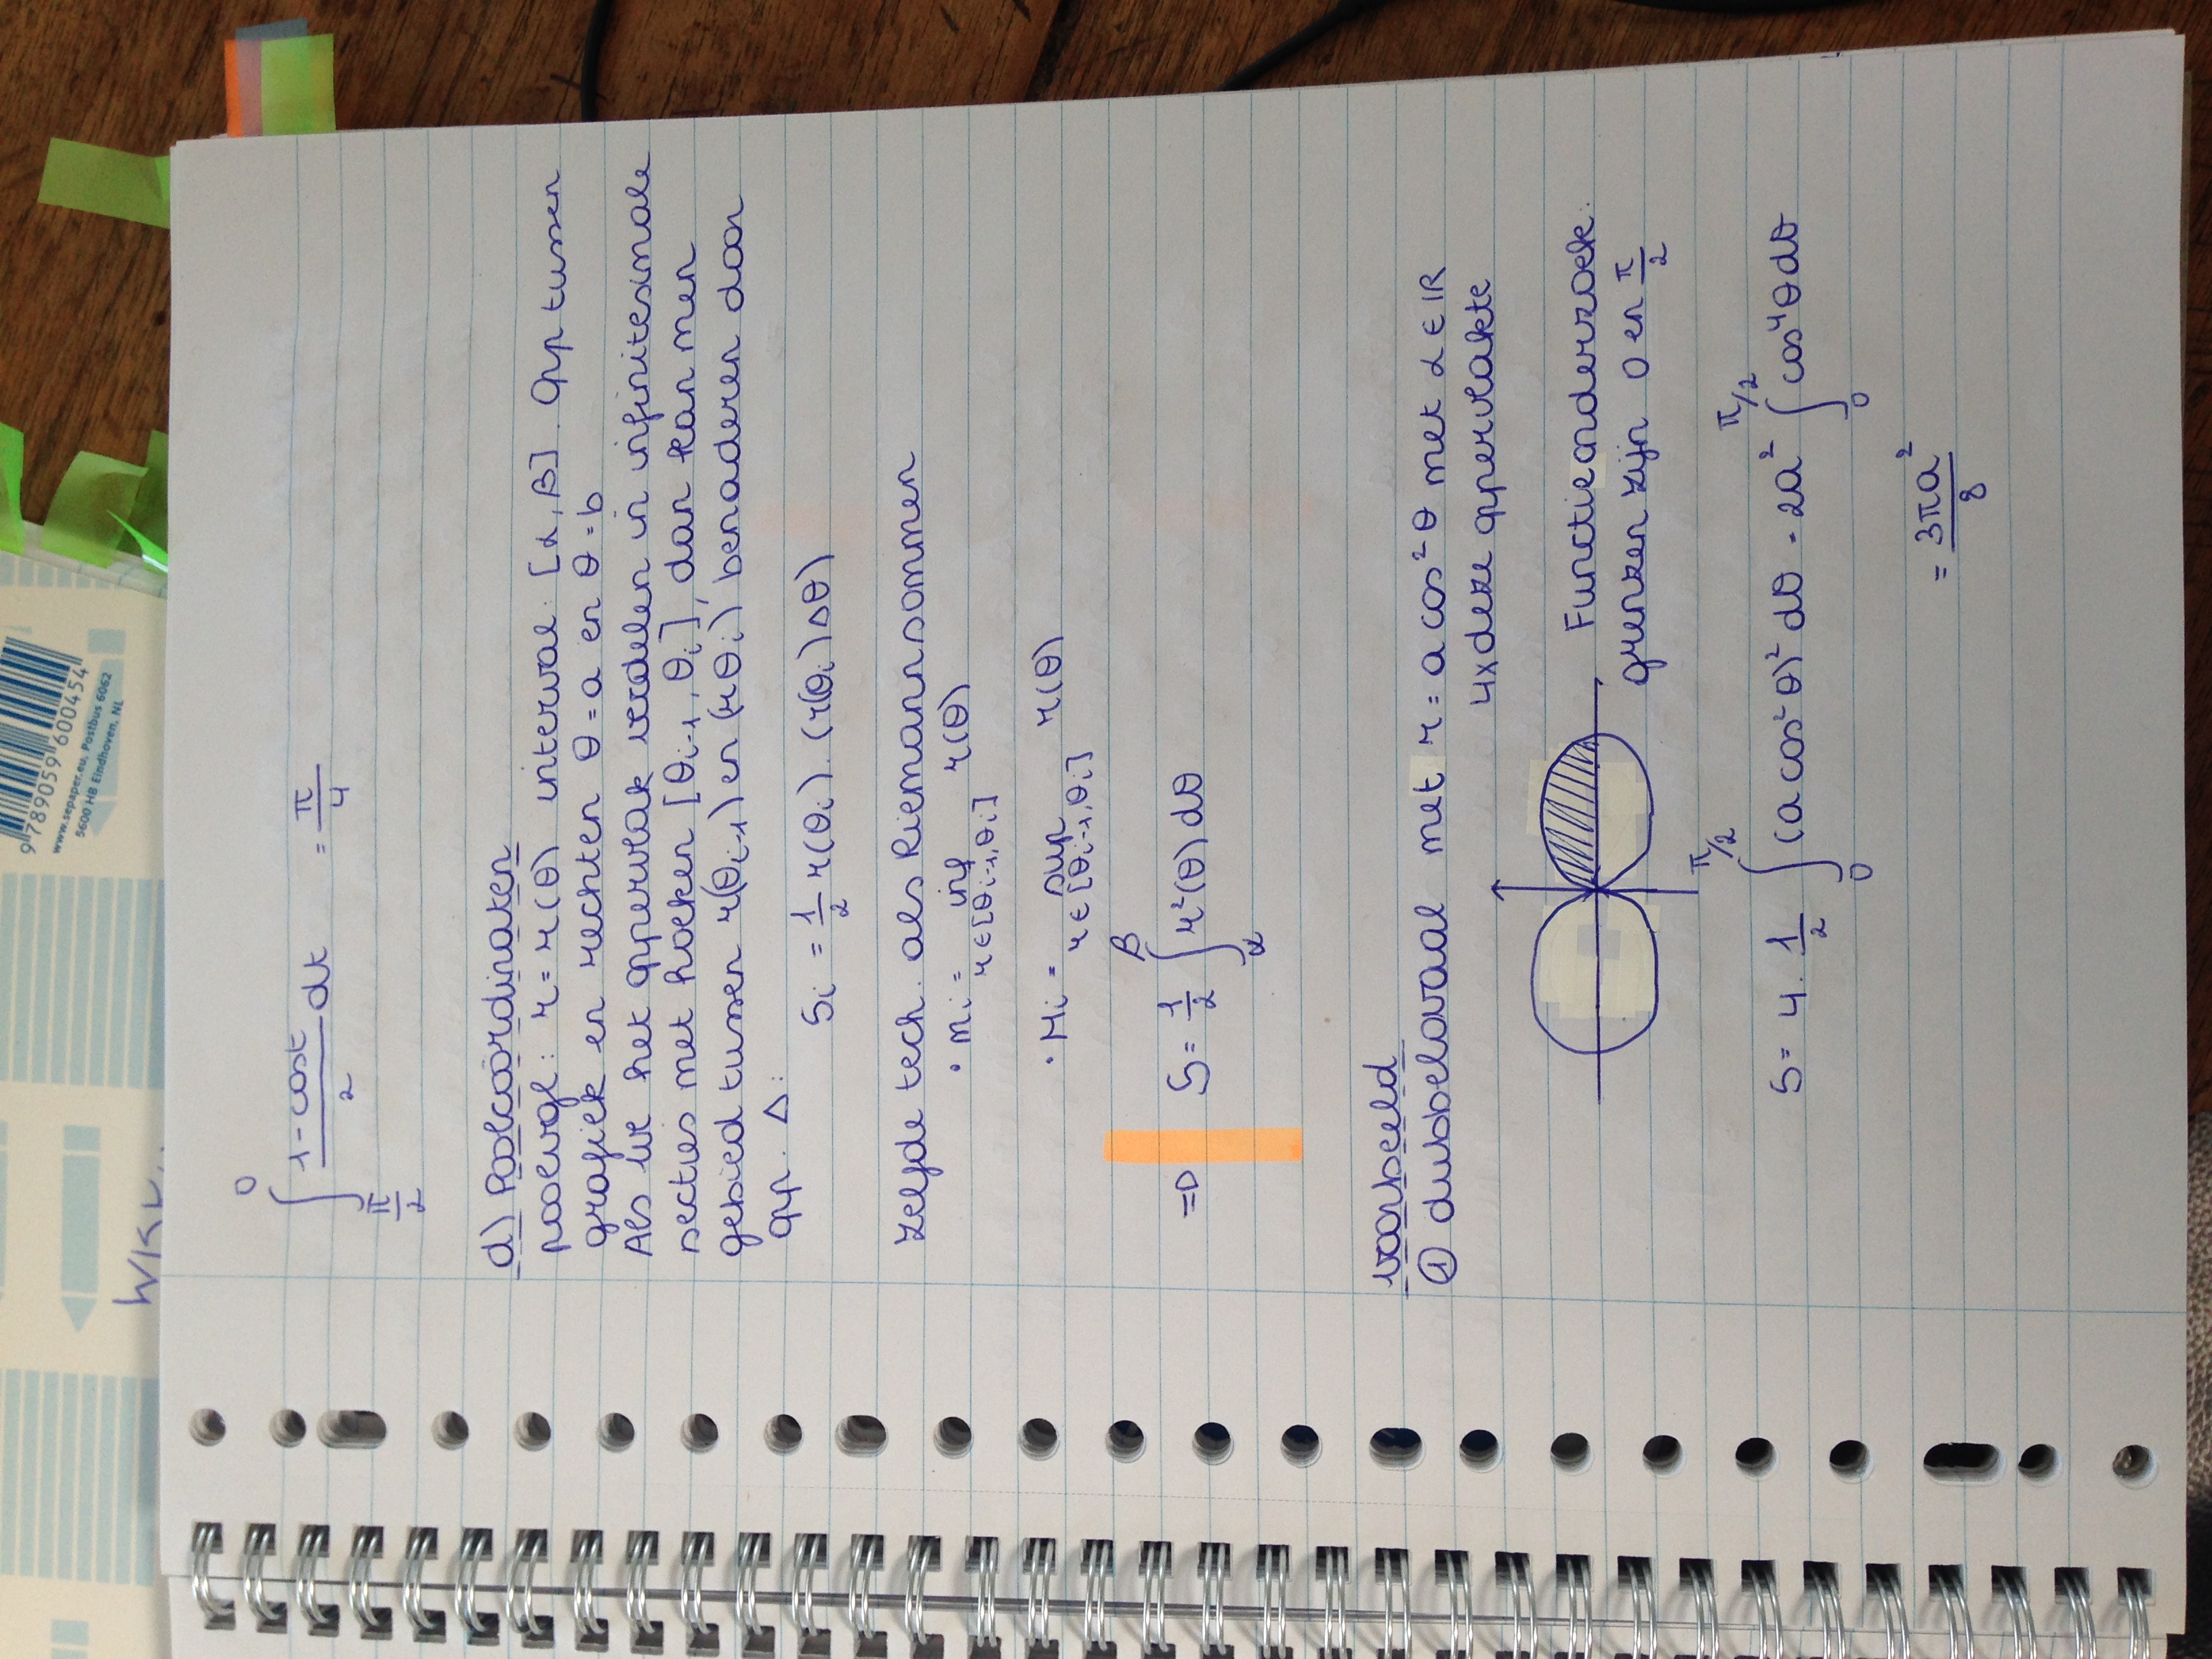 9 789059 600454
www.sepaper.eu, Postbus 6062
5600 HB Eindhoven, NL
∫_{π/2}^{0} (1-cost)/2 dt = π/4
d) Poolcoördinaten
poolvgl: r = r(θ) interval: [α, β]. Opp tussen
grafiek en rechten θ = a en θ = b
Als we het oppervlak verdelen in infinitesimale
secties met hoeken [θi-1, θi], dan kan men
gebied tussen r(θi-1) en (rθi) benaderen door
opp. Δ:
Si = 1/2 r(θi). (r(θi)Δθ)
Zelfde tech. als Riemannsommen
• mi = inf r(θ)
r∈[θi-1,θi]
• Mi = sup r(θ)
r∈[θi-1,θi]
=D S = 1/2 ∫_{α}^{β} r²(θ) dθ
voorbeeld
① dubbelovaal met r = a cos²θ met α ∈ IR
4x deze oppervlakte
Functieonderzoek:
grenzen zijn 0 en π/2
S = 4. 1/2 ∫_{0}^{π/2} (a cos²θ)² dθ = 2a² ∫_{0}^{π/2} cos⁴θdθ
= 3πa²/8